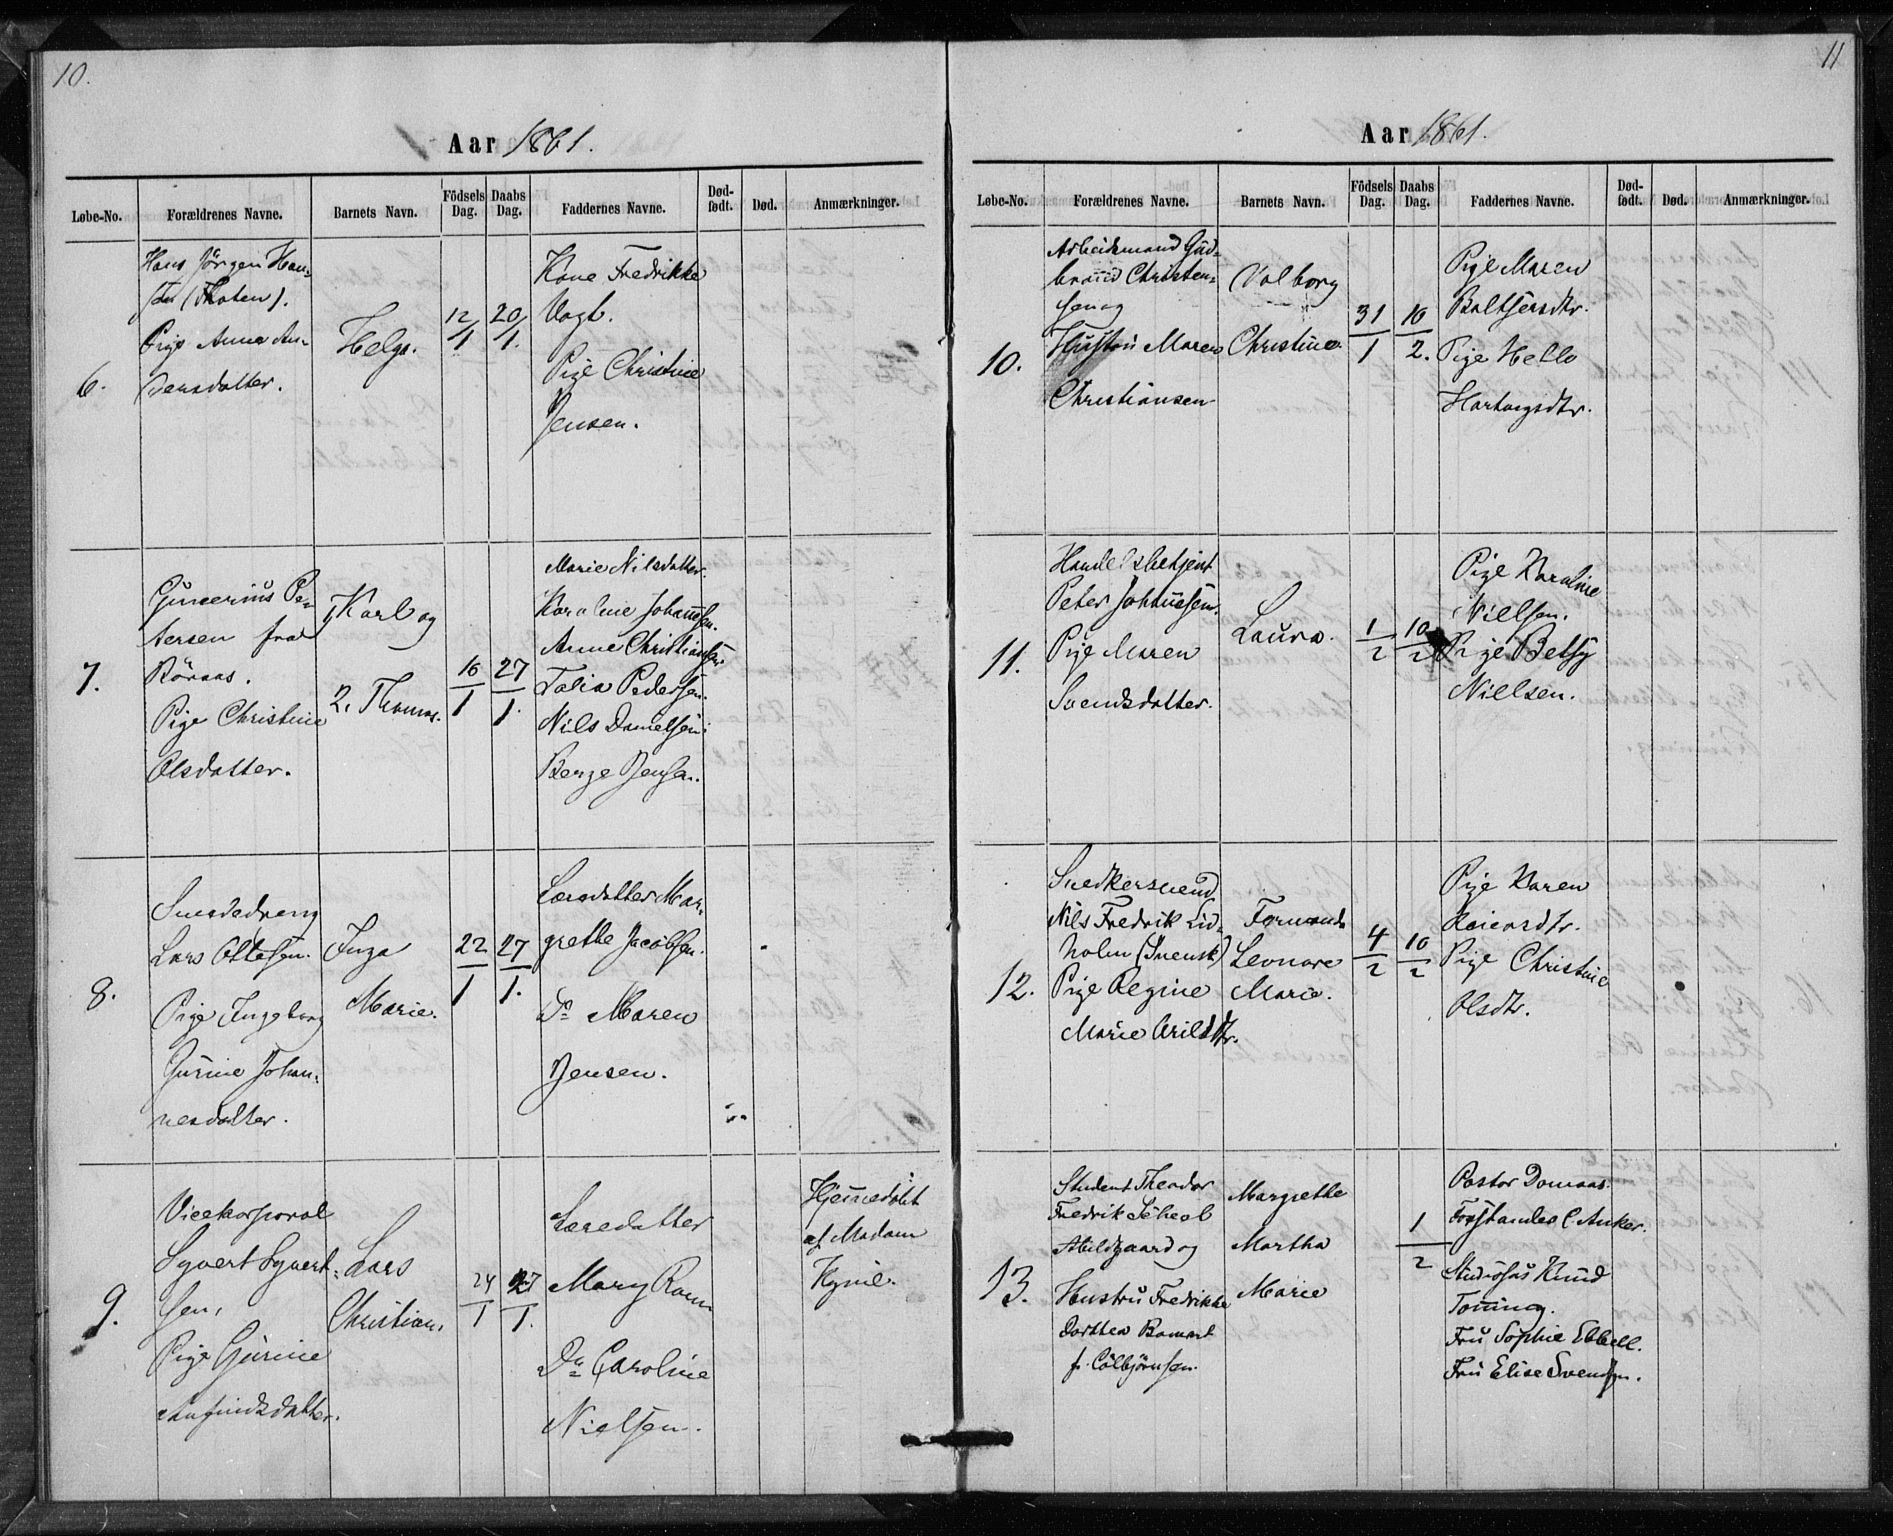 10.
Aar 1861.
Løbe-No. Forældrenes Navne. Barnets Navn. Födsels Dag. Daabs Dag. Faddernes Navne. Død-født. Død. Anmærkninger.
6.
Hans Jörgen Han-
sen (Thoten).
Pige Anna An-
dersdatter.
Helga.
12/1
20/1.
Kone Fredrikke
Vogt.
Pige Christine
Jensen.
7.
Gunerius Pe-
tersen fra
Röraas.
Pige Christine
Olsdatter.
1, Karl og
2. Thomas.
16/1
27/1.
Marie Nilsdatter.
Karoline Johannsen.
Anne Christiansen.
Talia Pedersen.
Nils Danielsen.
Berge Jensen.
8.
Smededreng
Lars Ottesen.
Pige Ingeborg
Gurine Johan-
nesdatter.
Inga
Marie.
22/1
27/1.
Læredatter Mar-
grethe Jacobsen.
Do Maren
Jensen.
9.
Vicekorporal
Syvert Syvert-
sen,
Pige Gurine
Anfindsdatter.
Lars
Christian.
24/1
27/1.
Læredatter
Mary Ram
Do Caroline
Nielsen.
Hjemmedøbt
af Madam
11
Aar 1861.
Løbe-No. Forældrenes Navne. Barnets Navn. Födsels Dag. Daabs Dag. Faddernes Navne. Død-født. Død. Anmærkninger.
10.
Arbeidsmand Gud-
brand Christen-
sen og
Hustru Maren
Christiansen
Valborg
Christine.
31/1
10/2.
Pige Maren
Baltsersdtr.
Pige Helle
Hartvigsdtr.
11.
Handelsbetjent
Peter Johnsen.
Pige Maren
Svendsdatter.
Laura.
1/2
10/2
Pige Karoline
Nielsen.
Pige Betsy
Nielsen.
12.
Snedkersvend
Nils Fredrik Lid-
holm (Svensk)
Pige Regine
Marie Arildsdtr.
Fernanda
Leonore
Marie.
4/2
10/2
Pige Karen
Pige Christine
Olsdtr.
13.
Student Theodor
Fredrik Scheel
Abildgaard og
Hustru Fredrikke
Dorthea
f. Colbjörnsen.
Margrethe
Martha
Marie
1/2
Pastor Domaas.
Forstander C Anker.
Studiosus Knud
Tönning.
Fru Sophie Ebbell.
Fru Elise Svendsen.